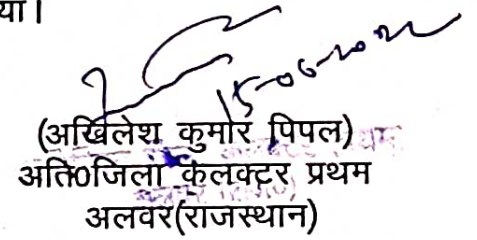 या।
15-06-2022
(अखिलेश कुमार पिपल)
अति0जिला कलक्टर प्रथम
अलवर(राजस्थान)